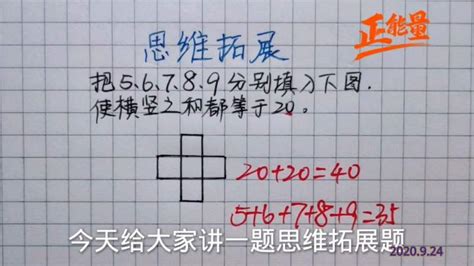 正能量
思维拓展
把5、6、7、8、9分别填入下图.
使横竖之和都等于20。
20+20=40
5+6+7+8+9=35
今天给大家讲一题思维拓展题
2020.9.24